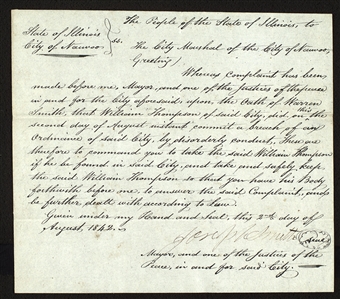 The People of the State of Illinois, to
State of Illinois } ss.
City of Nauvoo
The City Marshal of the City of Nauvoo,
Greeting;
Whereas complaint has been
made before me, Mayor, and one of the Justices of the peace
in and for the City aforesaid upon the Oath of Warren
Smith, that William Thompson of said City, did, on this
second day of August instant commit a breach of an
Ordinance of said City, by disorderly conduct, These are
therefore to command you to take the said William Thompson
if he be found in said City, and take and safely keep
the said William Thompson so that you have his Body
forthwith before me to answer the said Complaint, and
be further dealt with according to Law.
Given under my Hand and Seal, this 2nd day of
August, 1842.
Joseph Smith
Mayor, and one of the Justices of the
Peace, in and for said City.